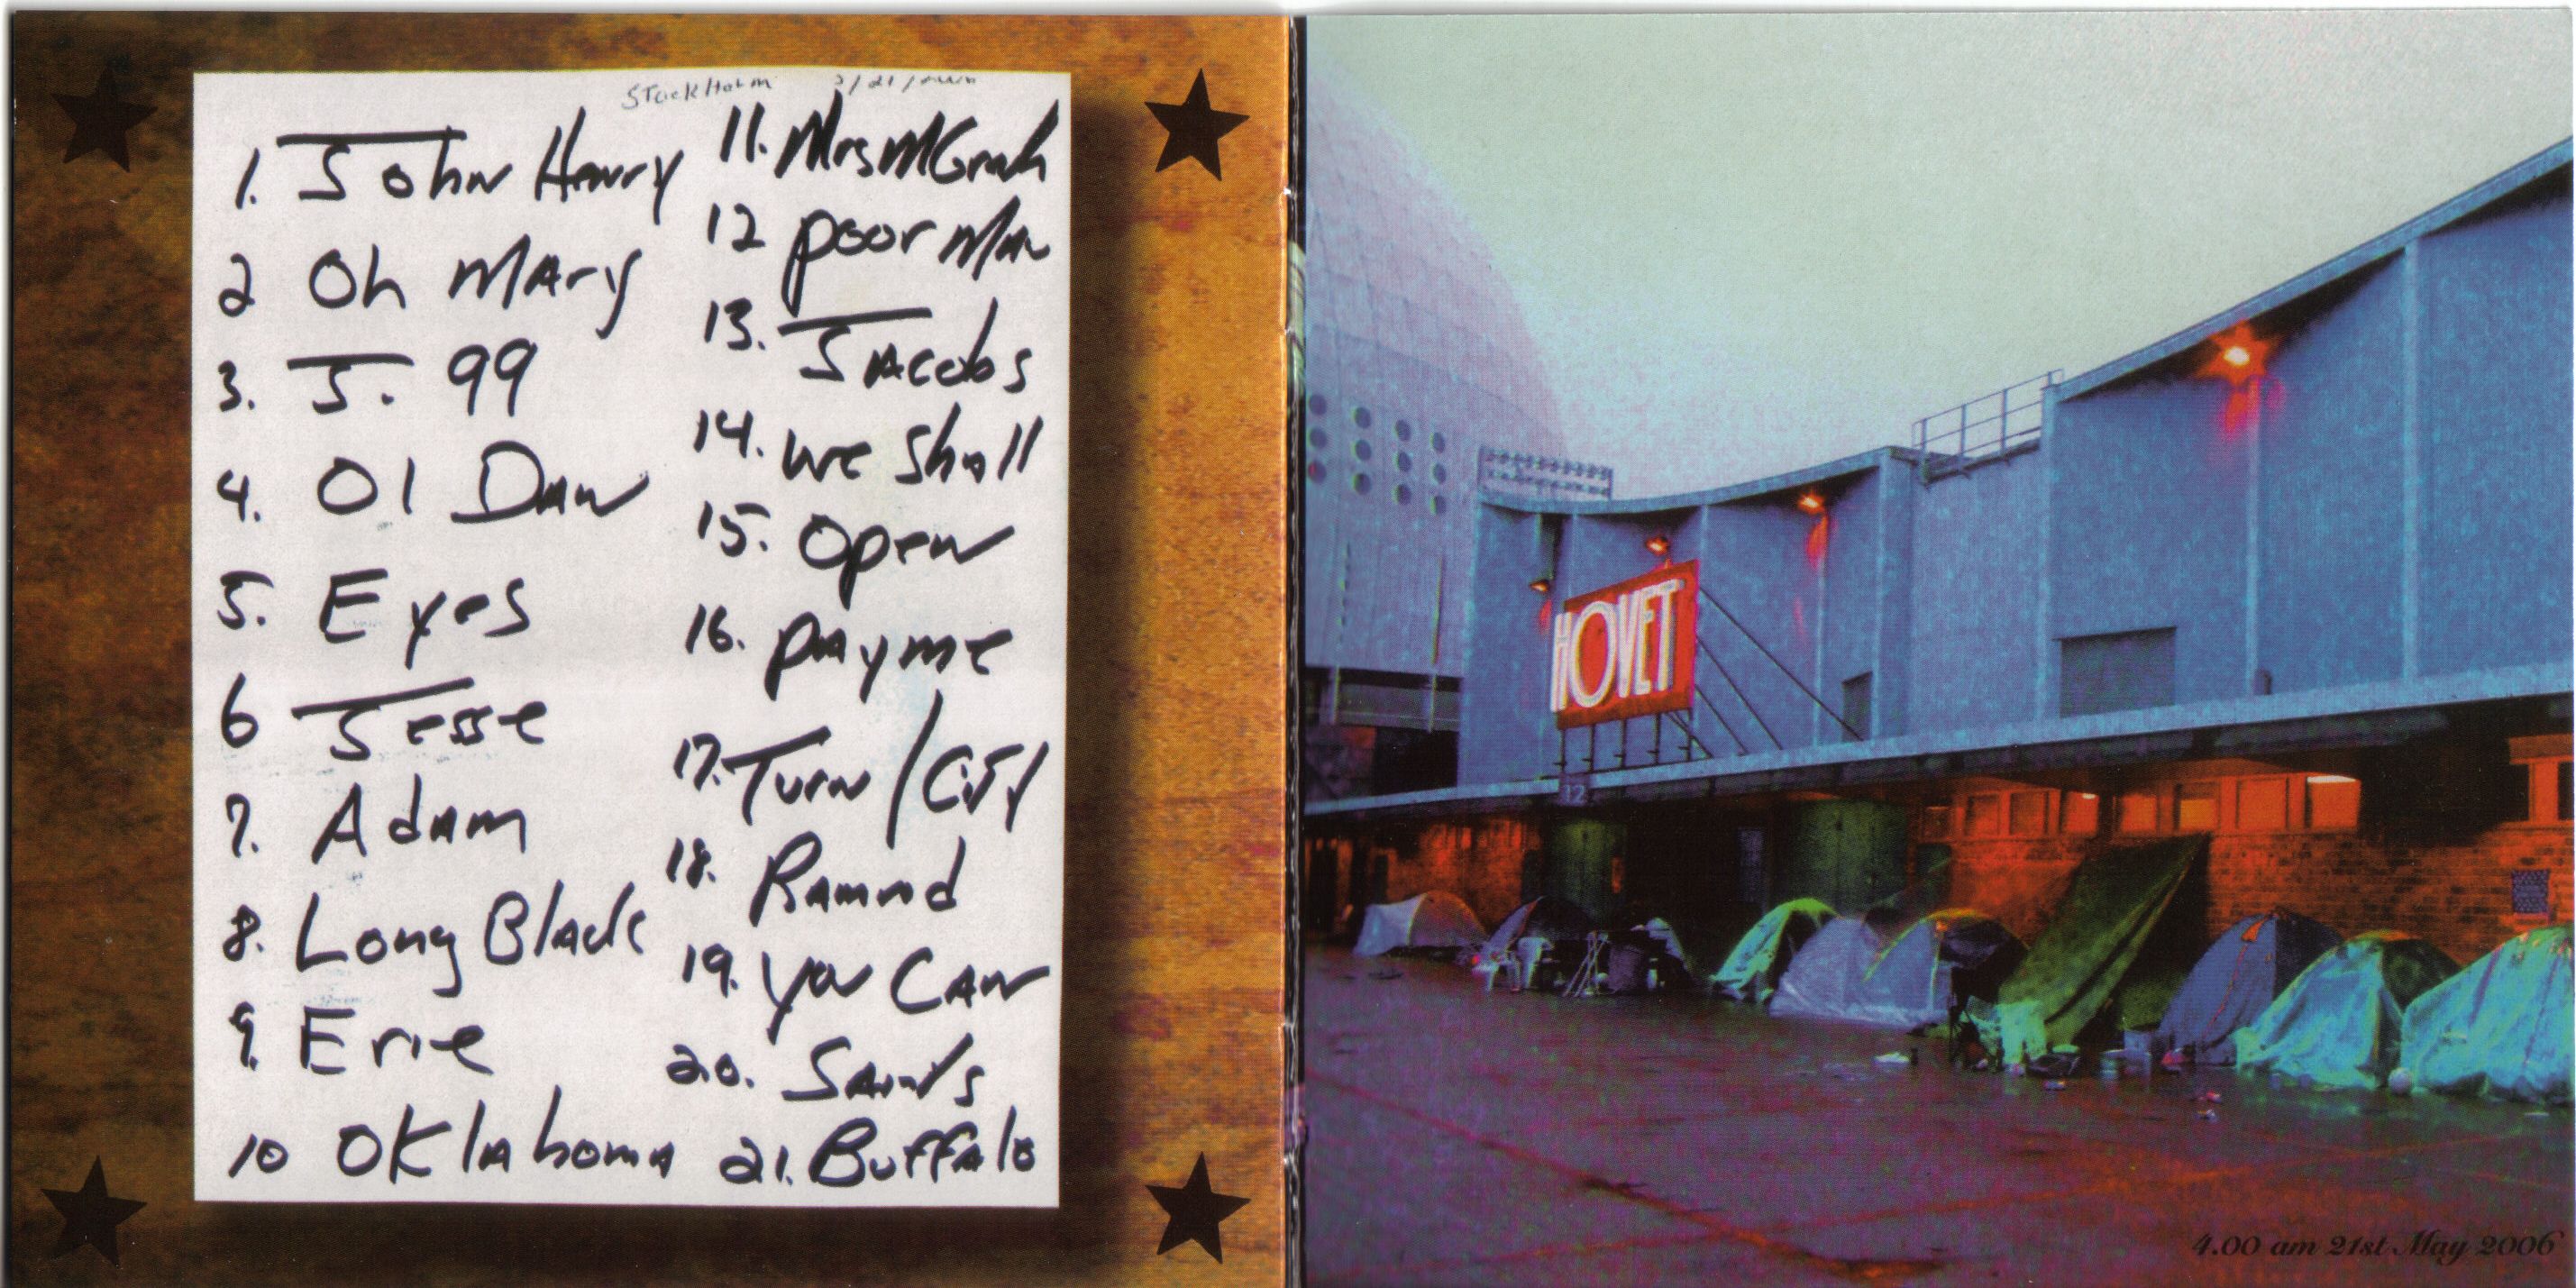 Stockholm 5/21/2006
1. John Henry
2 Oh Mary
3. J. 99
4. Ol Dan
5. Eyes
6 Jesse
7. Adam
8. Long Black
9. Erie
10 Oklahoma
11. Mrs McGrath
12 poor Man
13. Jacobs
14. we shall
15. Open
16. pay me
17. Turn / City
18. Ramrod
19. you Can
20. Saints
21. Buffalo
HOVET
12
4.00 am 21st May 2006